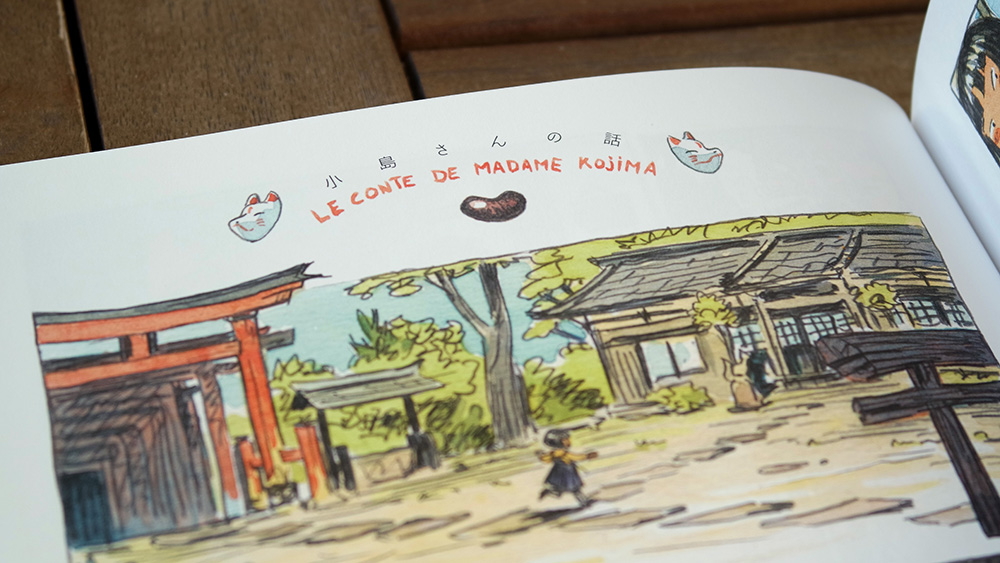 小島さんの話
LE CONTE DE MADAME KOJIMA